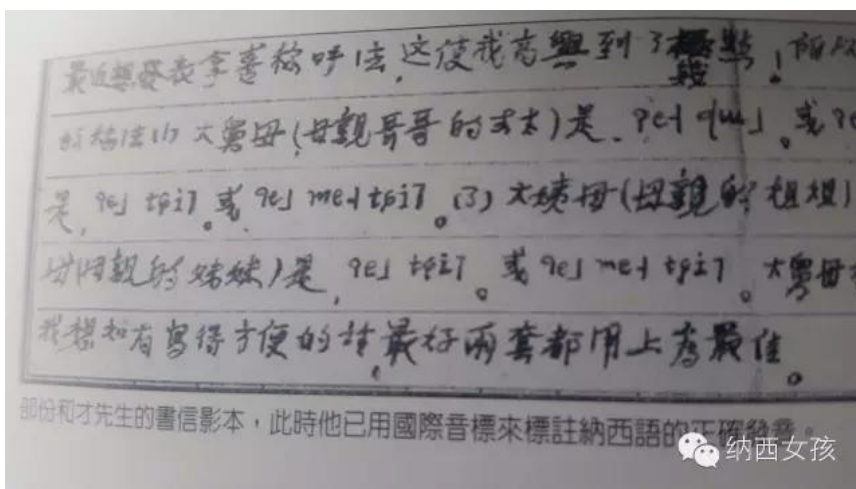 最近 拿喜稱呼法,這使我高興到了極點!
的稱法(1)大舅母(母親哥哥的太太)是.
是, ɂe˩ tɕi˥。或ɂe˩ me˧ tɕi˥。(3)大姨母(母親的姐姐)
母(母親的妹妹)是, ɂe˩ tɕi˥。或ɂe˩ me˧ tɕi˥。大舅母
寫得方便的話,最好兩套都用上為最佳。
部份和才先生的書信影本,此時他已用國際音標來標註納西語的正確發音。
纳西女孩